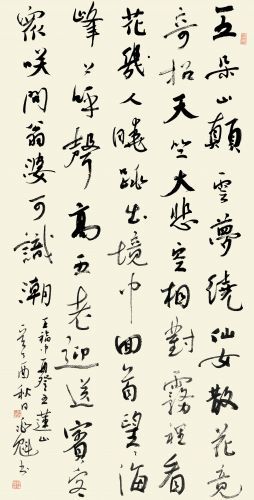 五朵山顛雲夢繞仙女散花竟
奇招天竺大悲空相對霧裡看
花幾人曉跳出境中回首望海
峰呼聲高五老迎送賓客
眾咲問翁婆可識潮
王福中再登五蓮山
酉秋日魁书